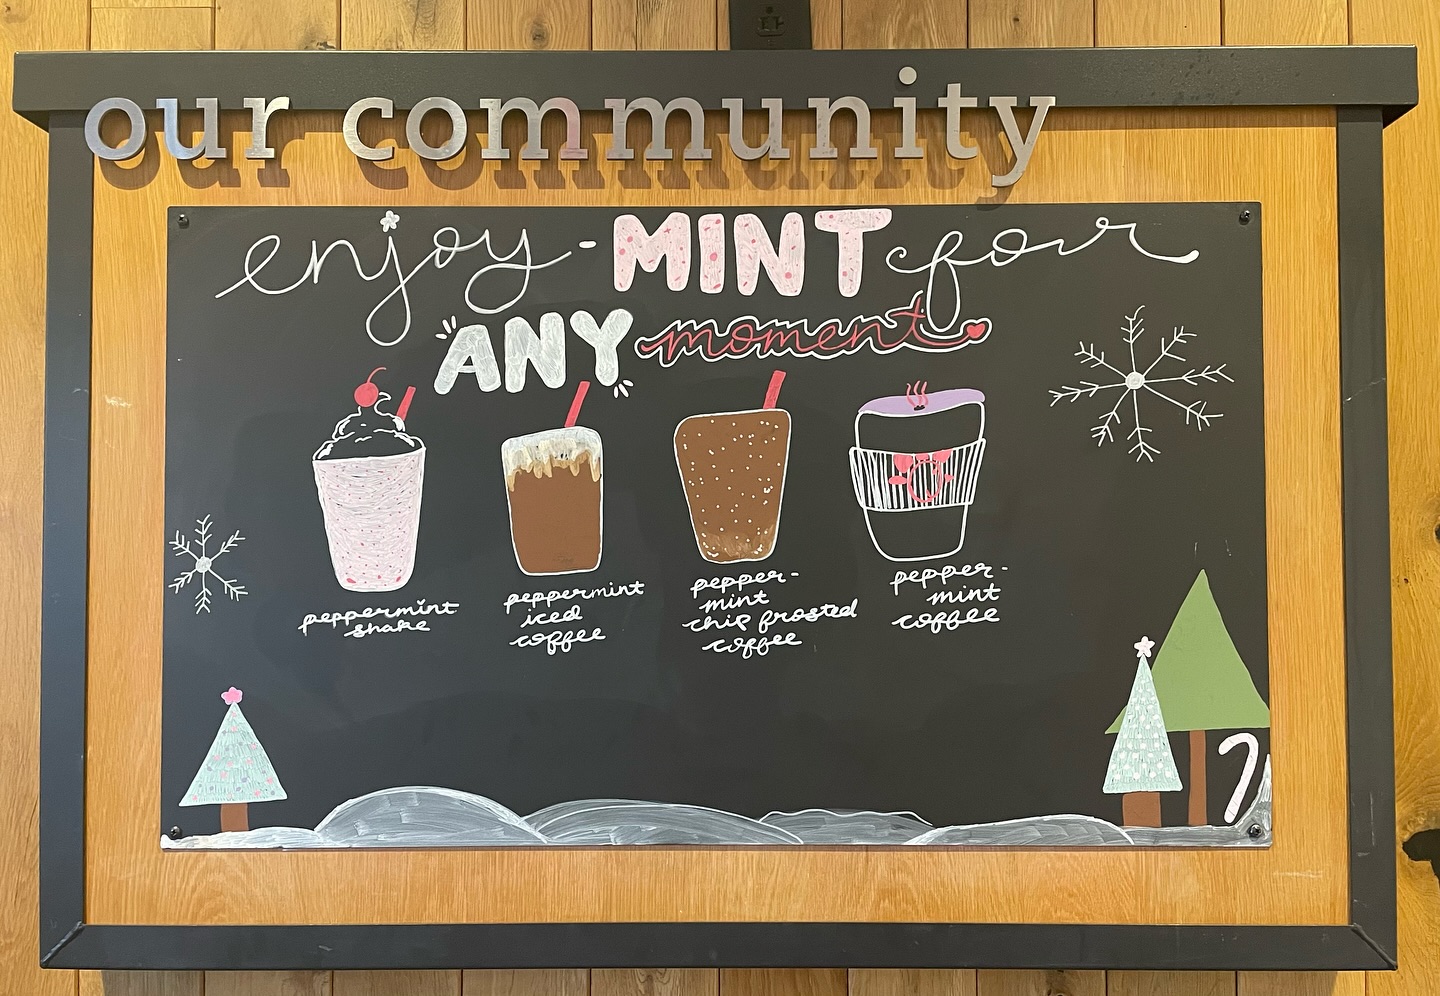 our community
enjoy-MINT for
ANY moment
peppermint
shake
peppermint
iced
coffee
pepper-
mint
chip frosted
coffee
pepper-
mint
coffee